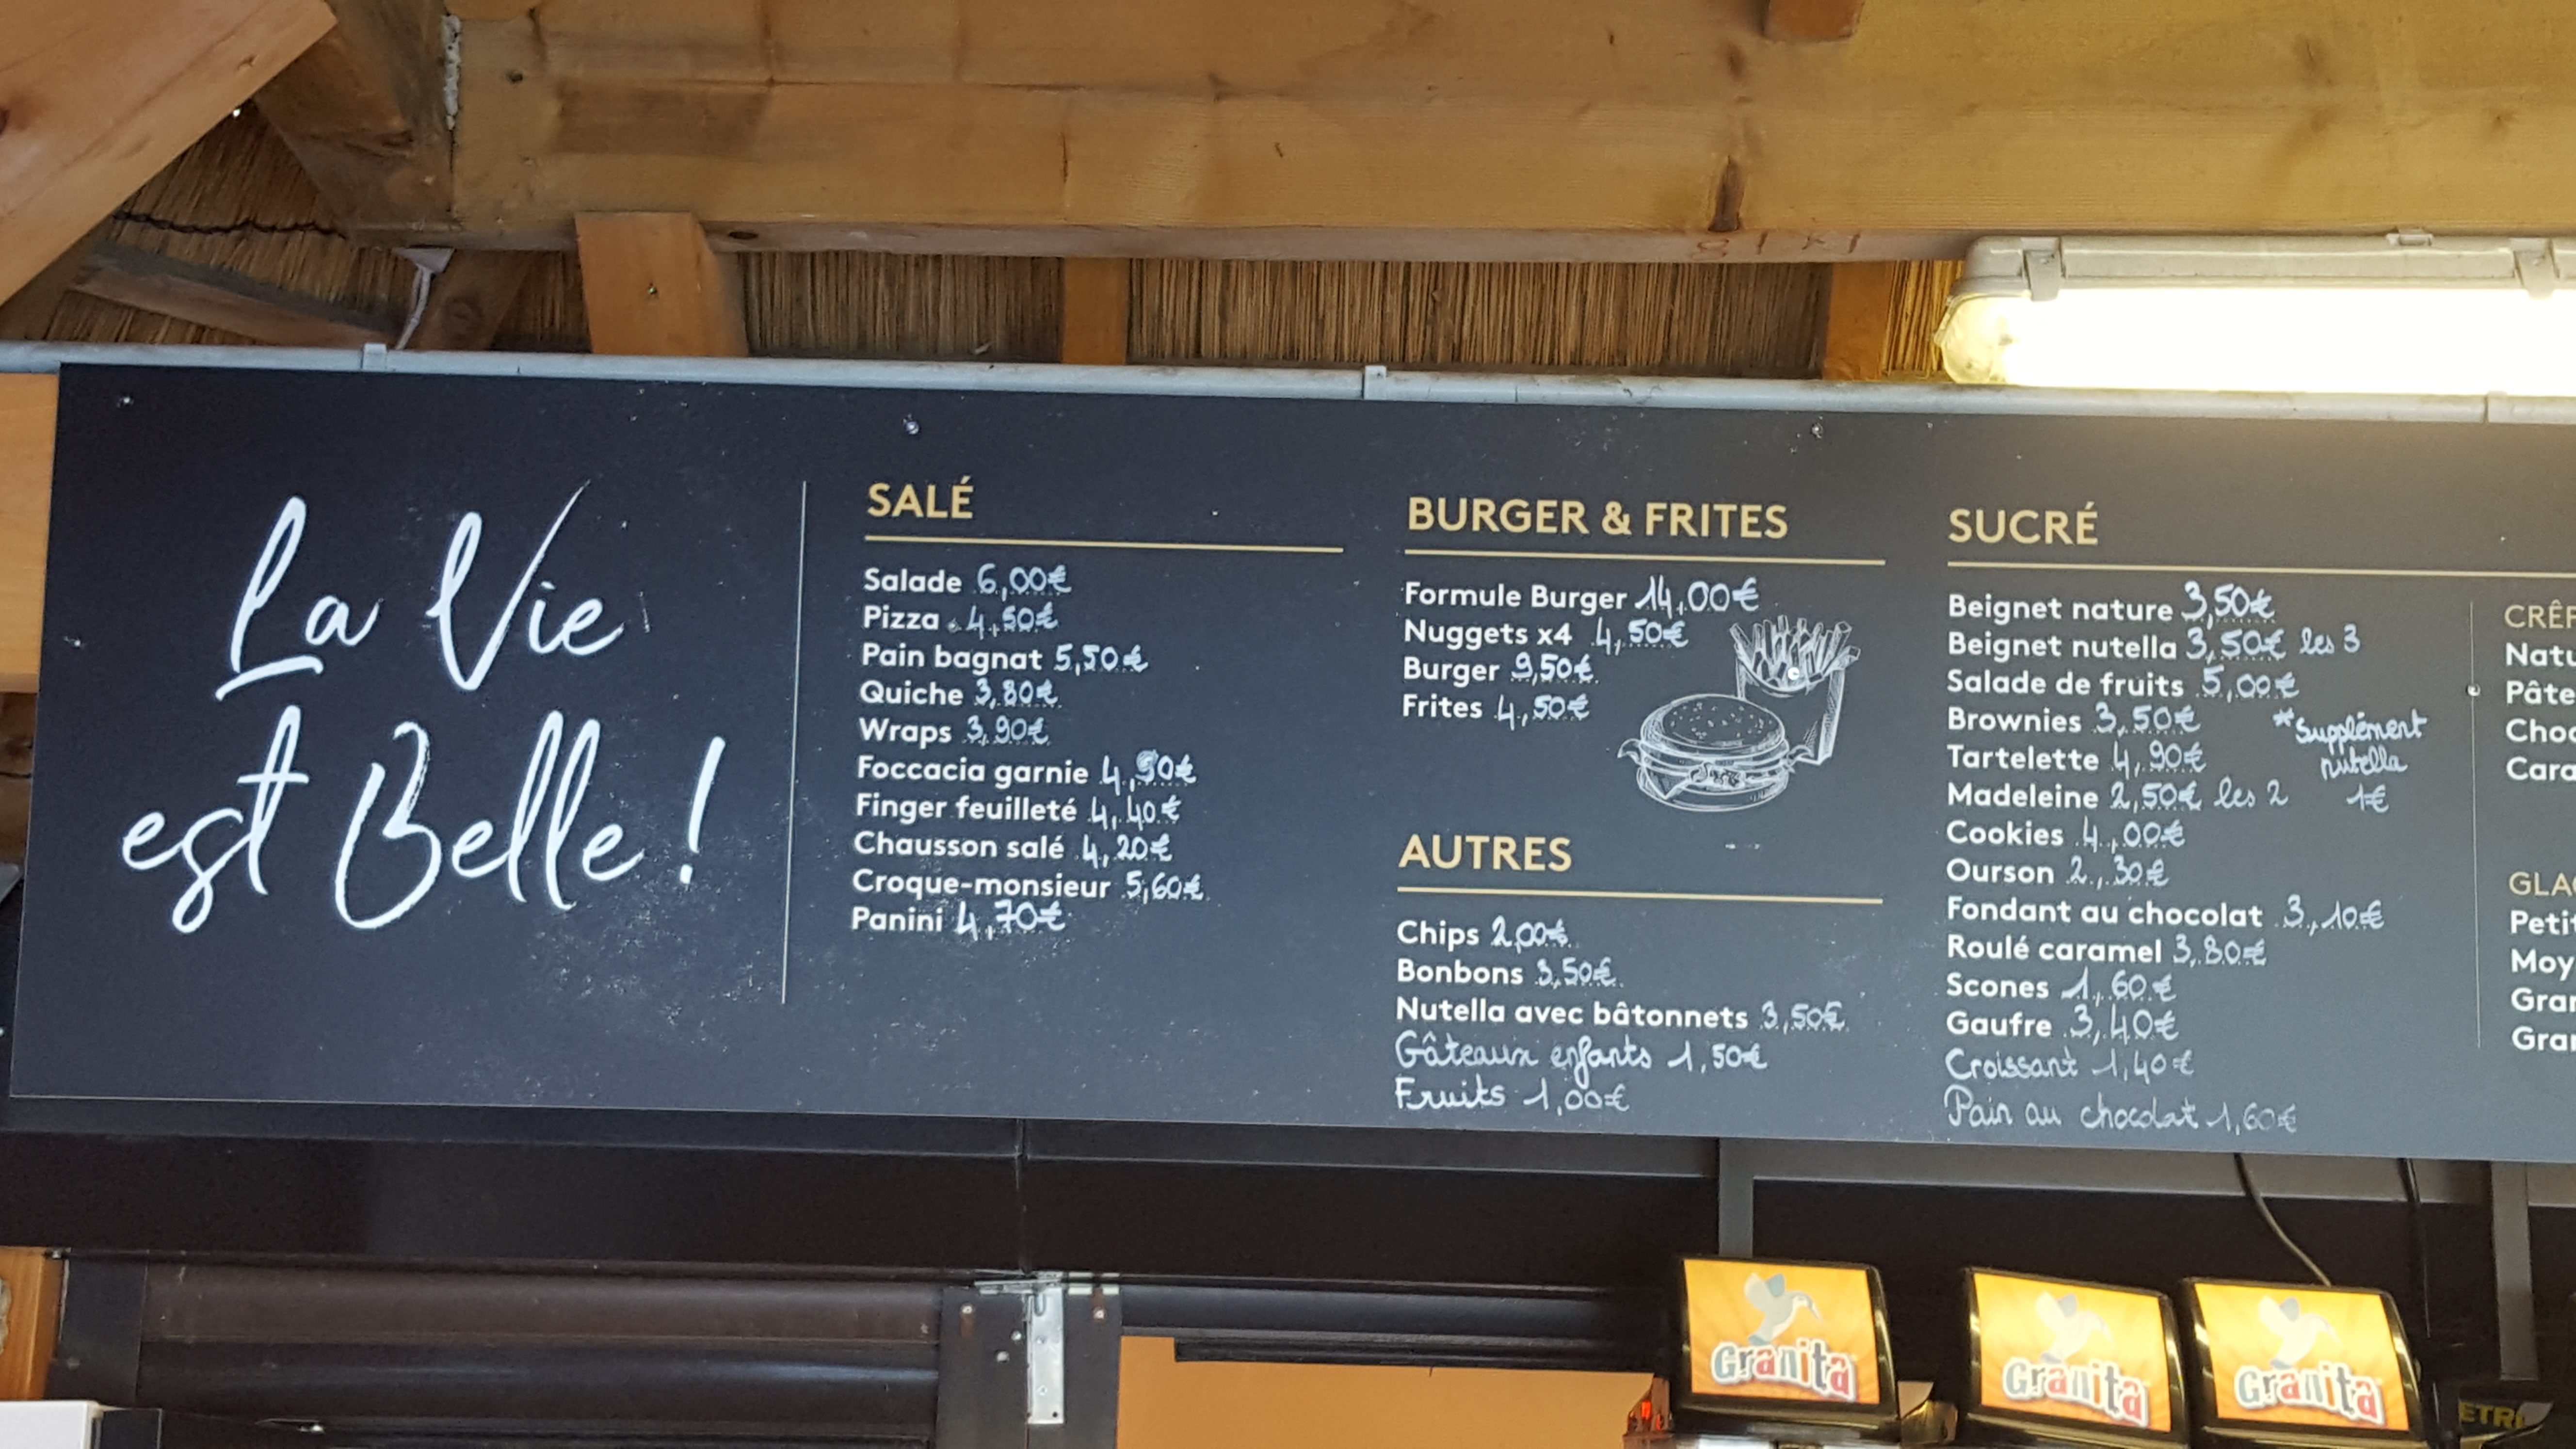 La Vie
est Belle !
SALÉ
Salade 6,00€
Pizza 4,50€
Pain bagnat 5,50€
Quiche 3,80€
Wraps 3,90€
Foccacia garnie 4,90€
Finger feuilleté 4,40€
Chausson salé 4,20€
Croque-monsieur 5,60€
Panini 4,70€
BURGER & FRITES
Formule Burger 14,00€
Nuggets x4 4,50€
Burger 9,50€
Frites 4,50€
AUTRES
Chips 2,00€
Bonbons 3,50€
Nutella avec bâtonnets 3,50€
Gâteaux enfants 1,50€
Fruits 1,00€
SUCRÉ
Beignet nature 3,50€
Beignet nutella 3,50€ les 3
Salade de fruits 5,00€
Brownies 3,50€
Tartelette 4,90€
Madeleine 2,50€ les 2
Cookies 4,00€
Ourson 2,30€
Fondant au chocolat 3,10€
Roulé caramel 3,80€
Scones 1,60€
Gaufre 3,40€
Croissant 1,40€
Pain au chocolat 1,60€
*Supplément
nutella
1€
CRÊP
Natu
Pâte
Choc
Cara
GLA
Petit
Moy
Gran
Gran
Granita
Granita
Granita